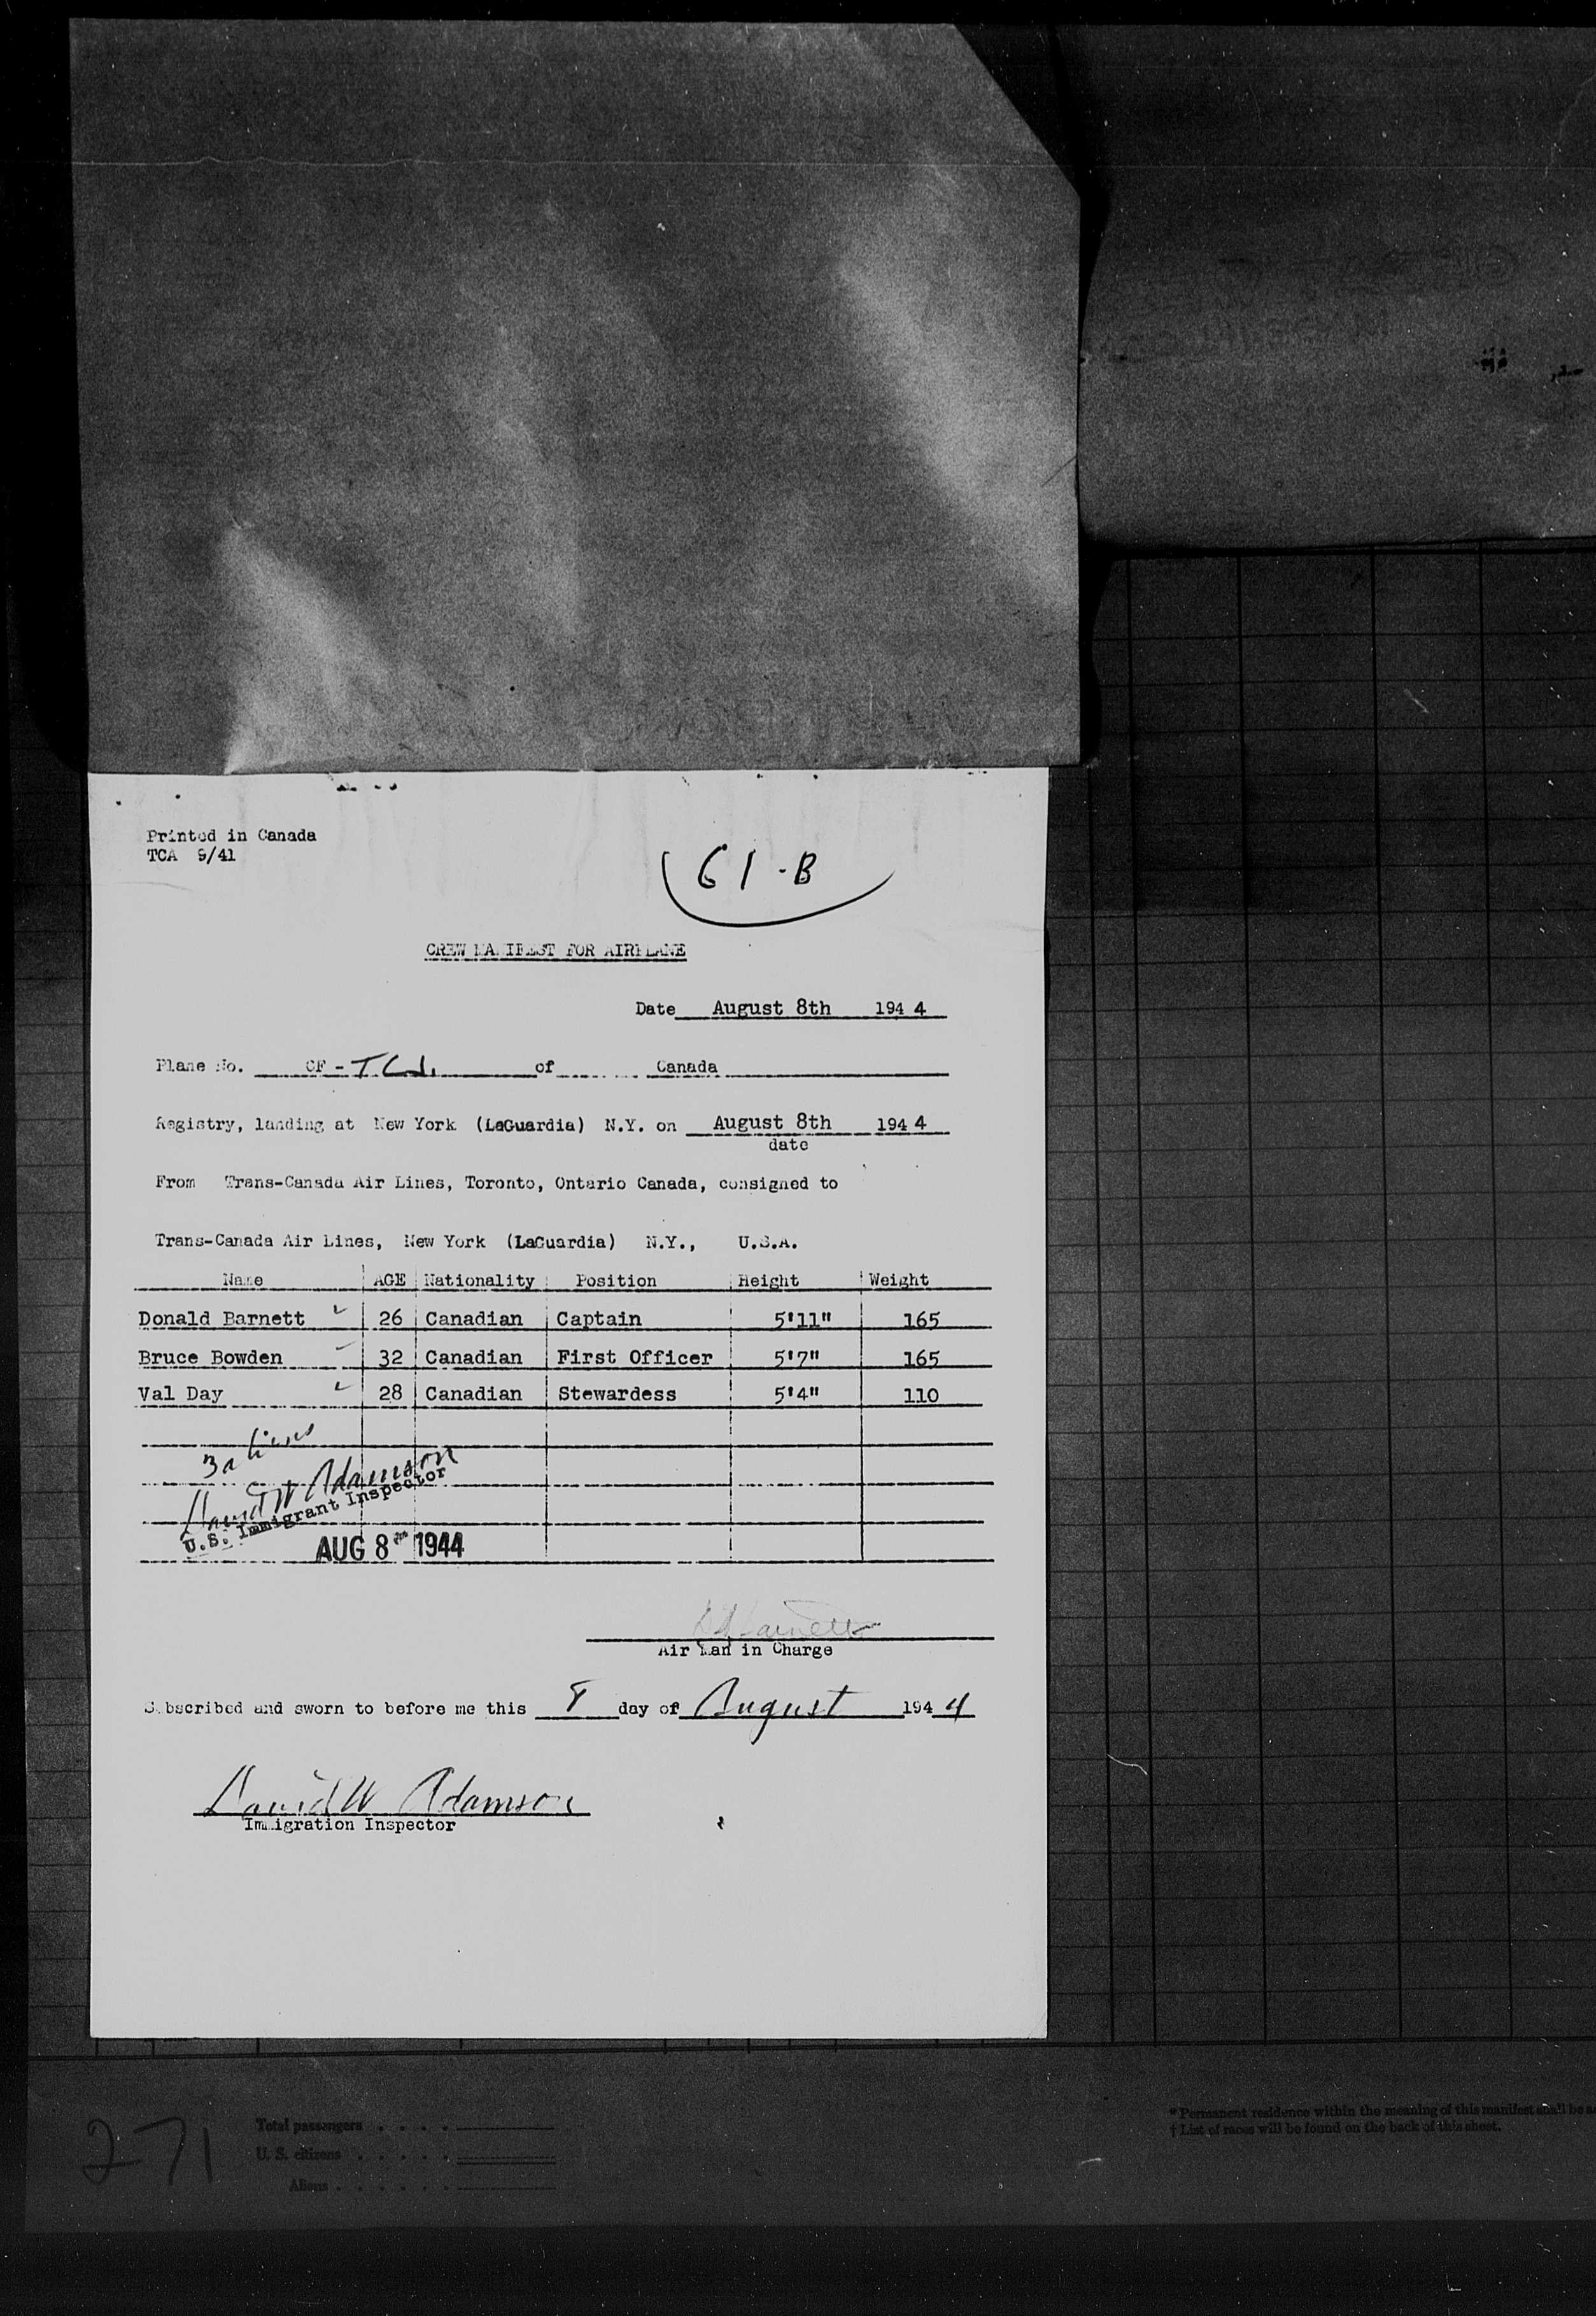 Printed in Canada
TCA 9/41
61-B
CREW MANIFEST FOR AIRPLANE
Date August 8th 1944
Plane No. CF- of Canada
Registry, landing at New York (LaGuardia) N.Y. on August 8th 1944
date
From Trans-Canada Air Lines, Toronto, Ontario Canada, consigned to
Trans-Canada Air Lines, New York (LaGuardia) N.Y., U.S.A.
Name AGE Nationality Position Height Weight
Donald Barnett 26 Canadian Captain 5'11" 165
Bruce Bowden 32 Canadian First Officer 5'7" 165
Val Day 28 Canadian Stewardess 5'4" 110
3 aliens
David W Adamson
U.S. Immigrant Inspector
AUG 8 1944
Air Man in Charge
Subscribed and sworn to before me this 8 day of August 1944
David W Adamson
Immigration Inspector
271
Total passengers
U. S. citizens
Aliens
* Permanent residence within the meaning of this manifest shall be
† List of races will be found on the back of this sheet.